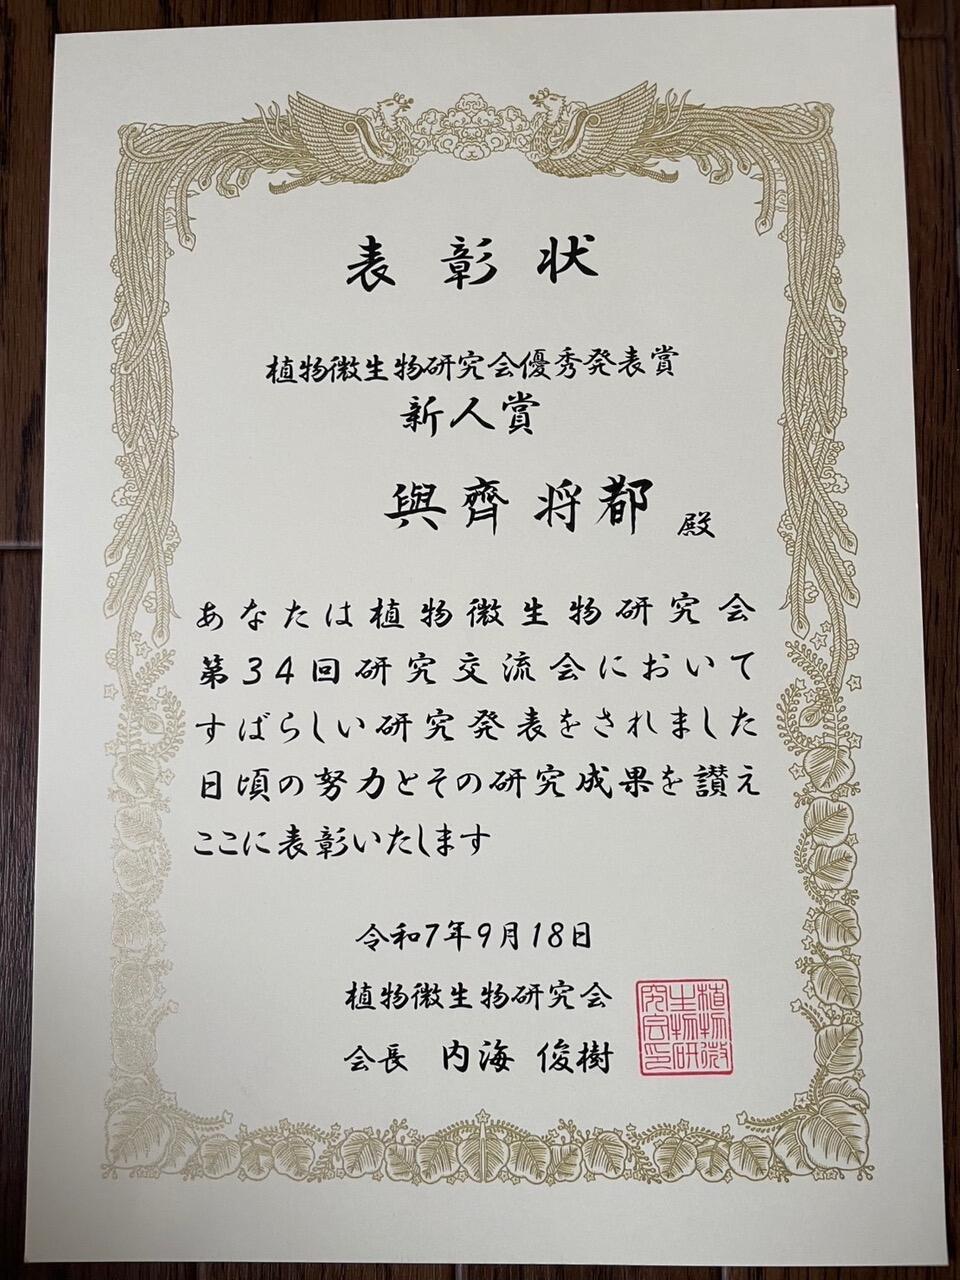 表彰状
植物微生物研究会優秀発表賞
新人賞
與齊 将都 殿
あなたは植物微生物研究会
第34回研究交流会において
すばらしい研究発表をされました
日頃の努力とその研究成果を讃え
ここに表彰いたします
令和7年9月18日
植物微生物研究会
会長 内海 俊樹
植物微
生物研
究会印